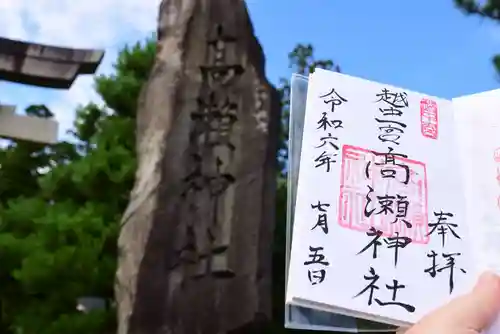 高瀬神社
奉拝
越中一宮
高瀬神社
令和六年
七月五日